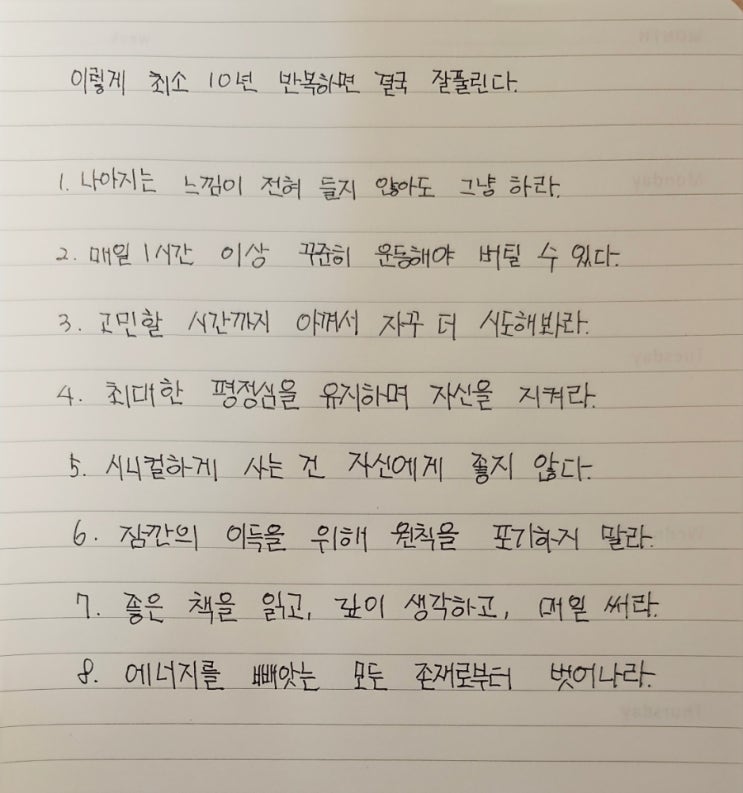 이렇게 최소 10년 반복하면 결국 잘풀린다.
1. 나아지는 느낌이 전혀 들지 않아도 그냥 하라.
2. 매일 1시간 이상 꾸준히 운동해야 버틸 수 있다.
3. 고민할 시간까지 아껴서 자꾸 더 시도해봐라.
4. 최대한 평정심을 유지하며 자신을 지켜라.
5. 시니컬하게 사는 건 자신에게 좋지 않다.
6. 잠깐의 이득을 위해 원칙을 포기하지 말라.
7. 좋은 책을 읽고, 깊이 생각하고, 매일 써라.
8. 에너지를 빼앗는 모든 존재로부터 벗어나라.